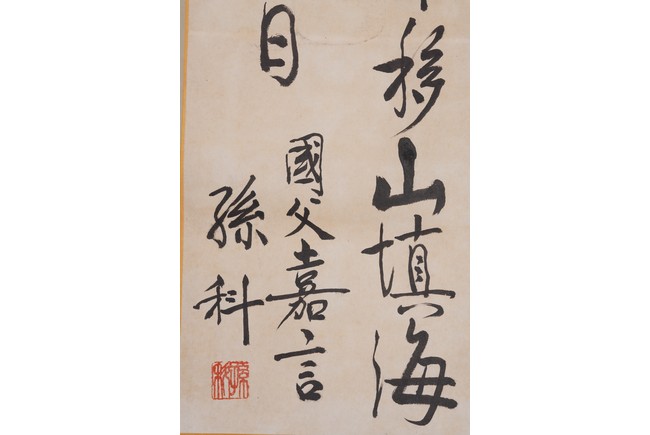 移山填海
目
國父嘉言
孫科